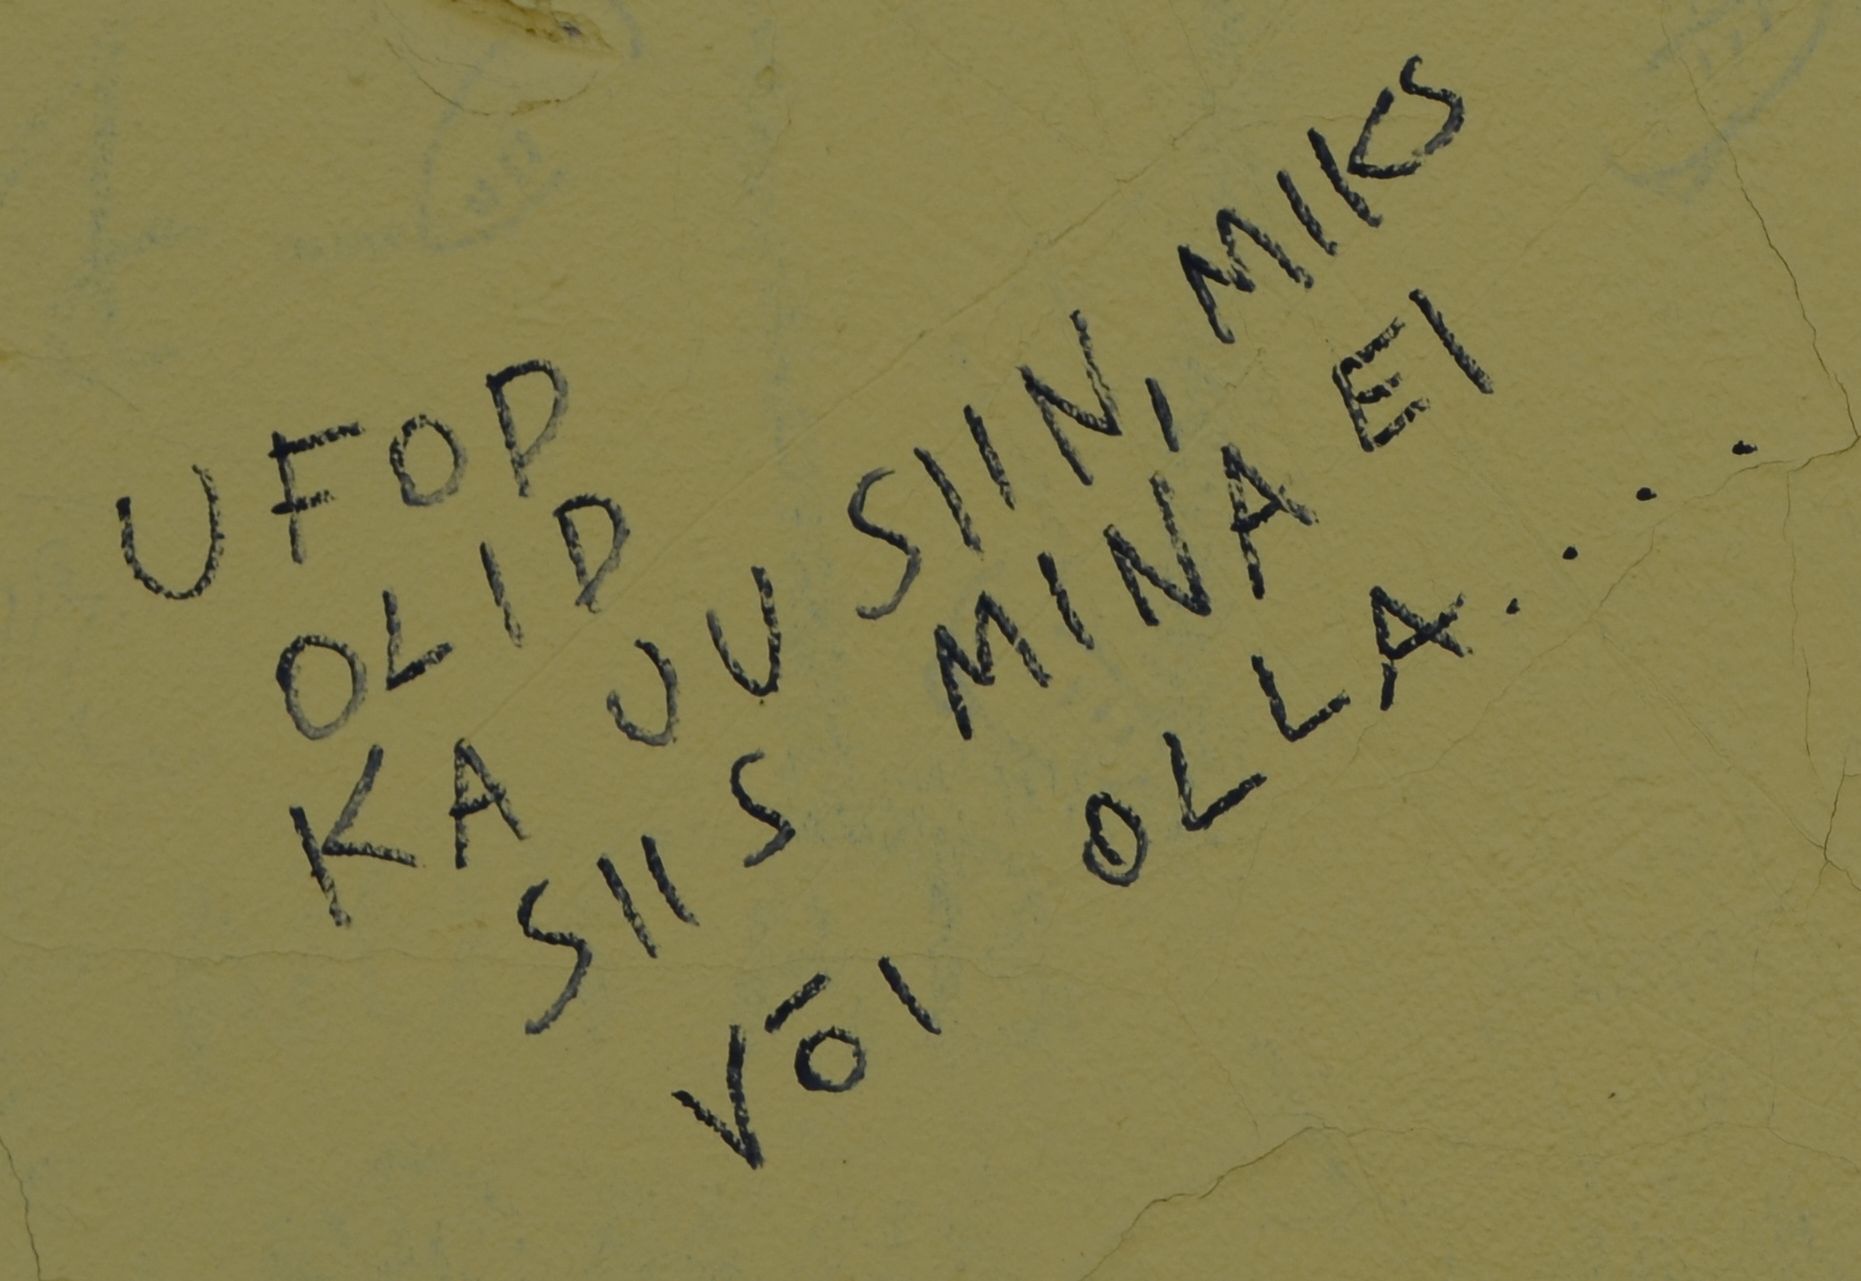 UFOD
OLID
KA JU SIIN, MIKS
SIIS MINA EI
VÕI OLLA....